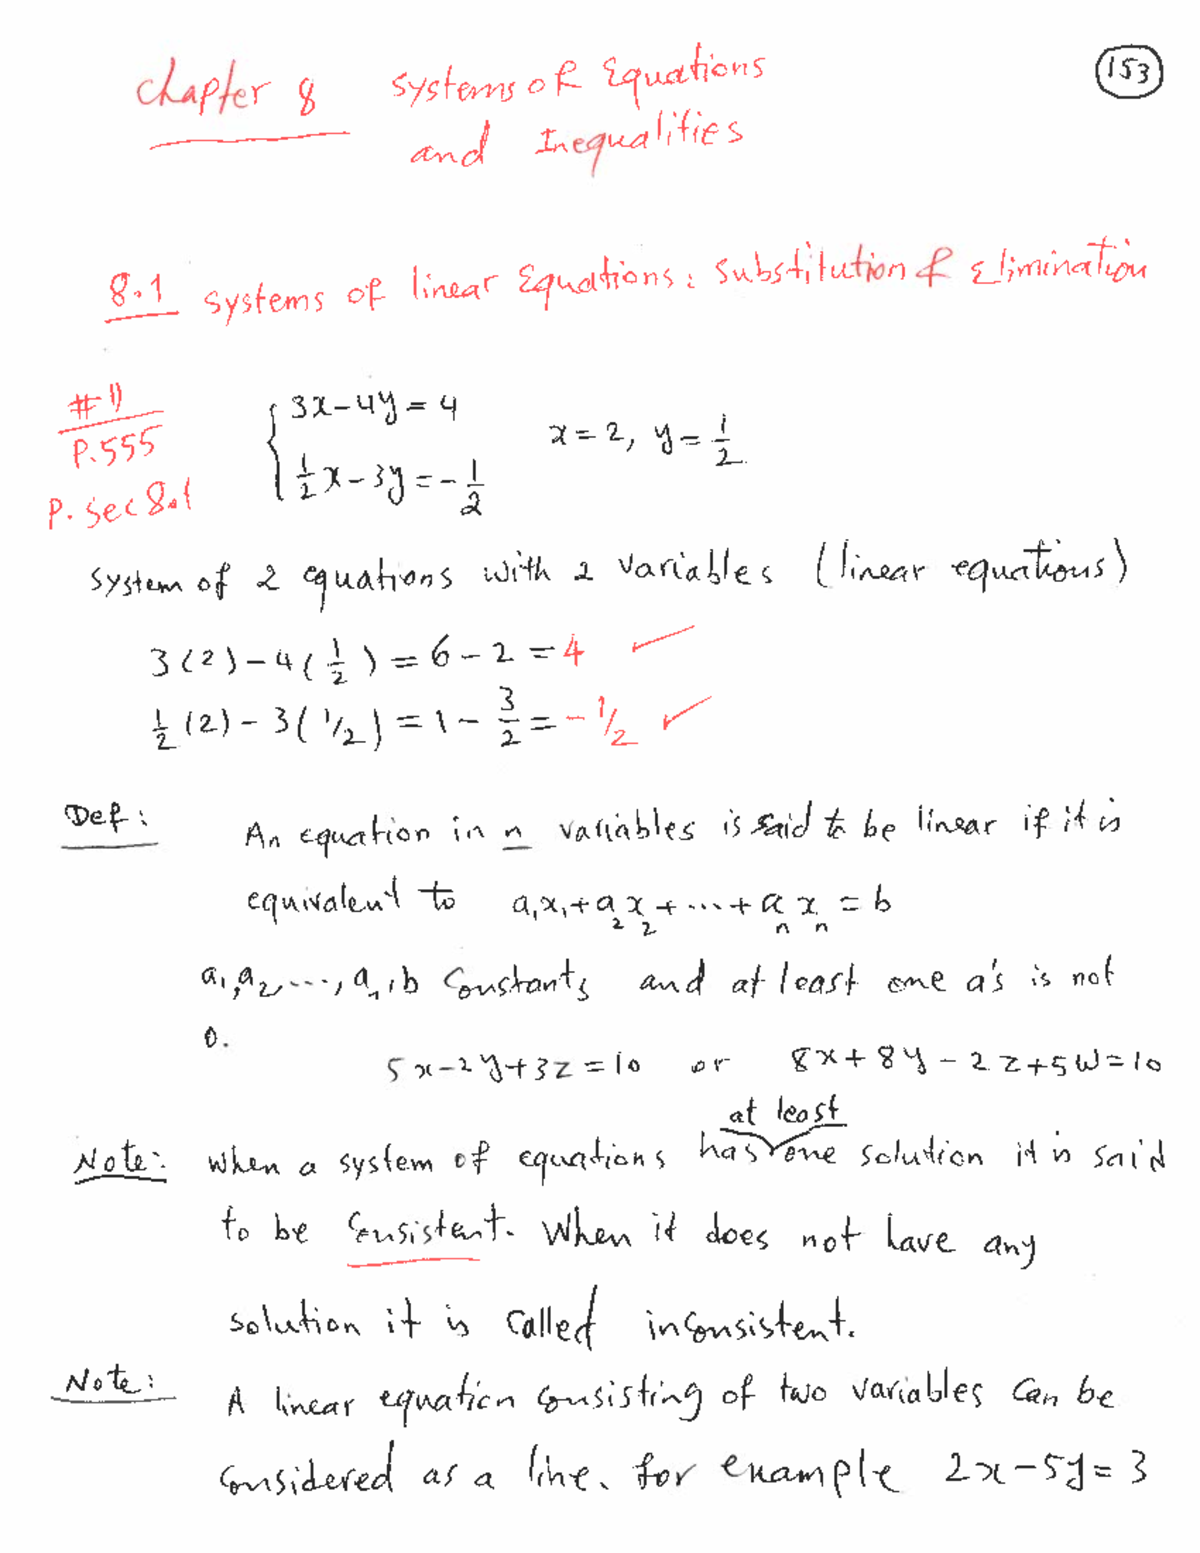 153
Chapter 8 Systems of Equations
and Inequalities
8.1 Systems of linear Equations: Substitution & Elimination
#11
P.555
P. Sec 8.1
3x-4y=4
½x-3y=-½
x=2, y=½
System of 2 equations with 2 variables (linear equations)
3(2)-4(½)=6-2=4 ✓
½(2)-3(1/2)=1-3/2=-1/2 ✓
Def: An equation in n variables is said to be linear if it is
equivalent to a₁x₁+a₂x₂+...+aₙxₙ=b
a₁,a₂,...,aₙ,b Constants and at least one a's is not
0.
5x-2y+3z=10 or 8x+8y-2z+5w=10
at least
Note: When a system of equations has one solution it is said
to be Consistent. When it does not have any
solution it is called inconsistent.
Note: A linear equation Consisting of two variables Can be
Considered as a line. for example 2x-5y=3